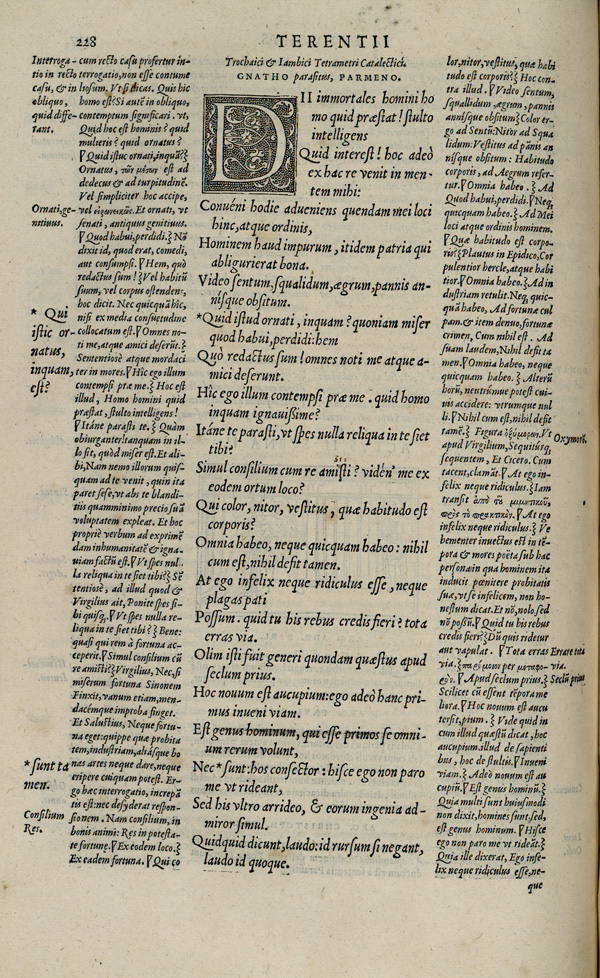 228
TERENTII
Interroga-
tio in recto
casu, & in
obliquo,
quid diffe-
rant.
Ornati, ge-
nitiuus.
* Qui
istic or-
natus,
inquam,
est?
*sunt ta
men.
Consilium
Res.
cum recto casu profertur in-
terrogatio, non esse contume
liosum. Vt si dicas. Quis hic
homo est? Si autē in obliquo,
contemptum significari. vt,
Quid hoc est hominis? quid
mulieris? quid ornatus?
Quid istuc ornati, inquā?
Ornatus, est ad
dedecus & ad turpitudinē.
Vel simpliciter hoc accipe,
vel Et ornati, vt
senati, antiquus genitiuus.
Quod habui, perdidi. Nō
dixit id, quod erat, comedi,
aut consumpsi. Hem, quò
redactus sum! Vel habitū
suum, vel corpus ostendens,
hoc dicit. Nec quicquā hîc,
nisi ex media consuetudine
collocatum est. Omnes no-
ti me, atque amici deserūt.
Sententiosè atque mordaci
ter in mores. Hîc ego illum
contempsi præ me. Hoc est
illud, Homo homini quid
præstat, stulto intelligens!
Itáne parasti te. Quàm
obiurganter! tanquam in il-
lo sit, quòd miser est. Et ali-
bi, Nam nemo illorum quis-
quam ad te venit, quin ita
paret sese, vt abs te blandi-
tiis quamminimo precio suā
voluptatem expleat. Et hoc
propriè verbum ad exprimē
dam inhumanitatē & igna-
uiam factū est. Vt spes nul
la reliqua in te siet tibi? Sē
tentiosè, ad illud quod &
Virgilius ait, Ponite spes si-
bi quisq. Vt spes nulla re-
liqua in te siet tibi? Bene:
quasi qui rem à fortuna ac-
ceperit. Simul consilium cū
re amisti? Virgilius, Nec, si
miserum fortuna Sinonem
Finxit, vanum etiam, men-
dacémque improba finget.
Et Salustius, Neque fortu-
na eget: quippe quæ probita
tem, industriam, aliásque bo
nas artes neque dare, neque
eripere cuiquam potest. Er-
go hæc interrogatio, increpā
tis est: nec desyderat respon-
sionem. Nam consilium, in
bonis animi: Res in potesta-
te fortunę. Ex eodem loco.
Ex eadem fortuna. Qui co
Trochaici & Iambici Tetrametri Catalectici.
GNATHO parasitus, PARMENO.
DII immortales homini ho
mo quid præstat! stulto
intelligens
Quid interest! hoc adeò
ex hac re venit in men-
tem mihi:
Conuéni hodie adueniens quendam mei loci
hinc, atque ordinis,
Hominem haud impurum, itidem patria qui
abligurierat bona.
Video sentum, squalidum, ægrum, pannis an-
nísque obsitum.
*Quid istud ornati, inquam? quoniam miser
quod habui, perdidi: hem
Quò redactus sum! omnes noti me atque a-
mici deserunt.
Hîc ego illum contempsi præ me. quid homo
inquam ignauissime?
Itáne te parasti, vt spes nulla reliqua in te siet
tibi?
Simul consilium cum re amisti? vidén' me ex
eodem ortum loco?
Qui color, nitor, vestitus, quæ habitudo est
corporis?
Omnia habeo, neque quicquam habeo: nihil
cum est, nihil desit tamen.
At ego infelix neque ridiculus esse, neque
plagas pati
Possum. quid tu his rebus credis fieri? tota
erras via.
Olim isti fuit generi quondam quæstus apud
seclum prius.
Hoc nouum est aucupium: ego adeò hanc pri-
mus inueni viam.
Est genus hominum, qui esse primos se omni-
um rerum volunt,
Nec *sunt: hos consector: hisce ego non paro
me vt rideant,
Sed his vltro arrideo, & eorum ingenia ad-
miror simul.
Quidquid dicunt, laudo: id rursum si negant,
laudo id quoque.
lor, nitor, vestitus, quæ habi
tudo est corporis? Hoc con-
tra illud. Video sentum,
squallidum, ægrum, pannis
annísque obsitum: Color er-
go ad Sentū: Nitor ad Squa
lidum: Vestitus ad pānis an
nísque obsitum: Habitudo
corporis, ad Aegrum refer-
tur. Omnia habeo. Ad
Quod habui, perdidi. Neq,
quicquam habeo. Ad Mei
loci atque ordinis hominem.
Quæ habitudo est corpo-
ris? Plautus in Epidico, Cor
pulentior hercle, atque habi
tior. Omnia habeo. Ad in
dustriam retulit. Neq, quic-
quā habeo, Ad fortunæ cul
pam. & item denuo, fortunæ
crimen, Cum nihil est. Ad
suam laudem, Nihil desit ta
men. Omnia habeo, neque
quicquam habeo. Alterū
horū, neutrúmue potest cui-
uis accidere: vtrumque nul
li. Nihil cum est, nihil desit
tamē. Figura Vt
apud Virgilium, Sequiturq,
sequentem, Et Cicero. Cum
tacent, clamāt. At ego in-
felix neque ridiculus. Iam
transit
At ego
infelix neque ridiculus. Ve
hementer inuectus est in tē-
pora & mores poëta sub hac
persona in qua hominem ita
induxit pœnitere probitatis
suæ, vt se infelicem, non ho-
nestum dicat. Et nō, nolo, sed
nō possū. Quid tu his rebus
credis fieri? Dū quis ridetur
aut vapulat. Tota erras
via.
Apud seclum prius.
Scilicet cū essent tēpora me
liora. Hoc nouum est aucu
Vide quid in
cum illud quæstū dicat, hoc
aucupium. illud de sapienti
bus, hoc de stultis. Inueni
viam. Adeò nouum est au
cupiū. Est genus hominū.
Quia multi sunt huiusmodi
non dixit, homines sunt, sed,
est genus hominum. Hisce
ego non paro me vt rideāt.
Quia ille dixerat, Ego infe-
lix neque ridiculus esse, ne-
que
Oxymorō.
Errare tota
via.
Seclū prius